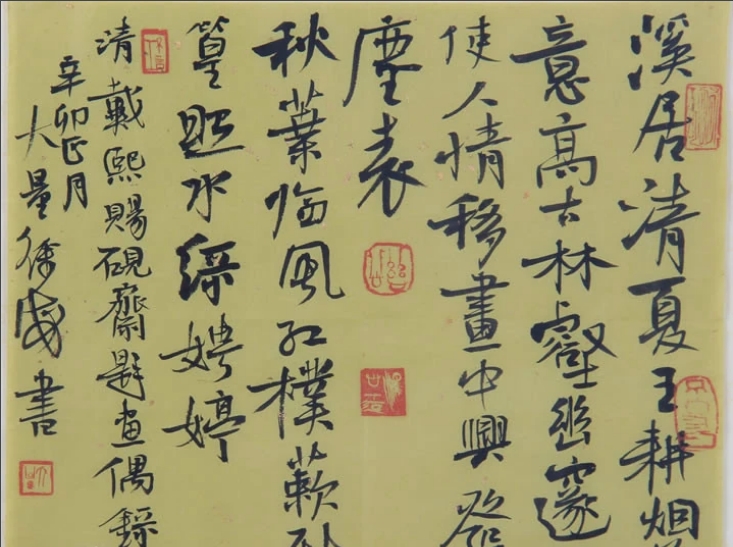 溪居清夏王耕烟
意高古林壑幽邃
使人情移畫中興發
塵表
秋葉临風红樸蔌
篁照水綠娉婷
清戴熙賜硯齋題畫偶錄
辛卯正月
大量徐書